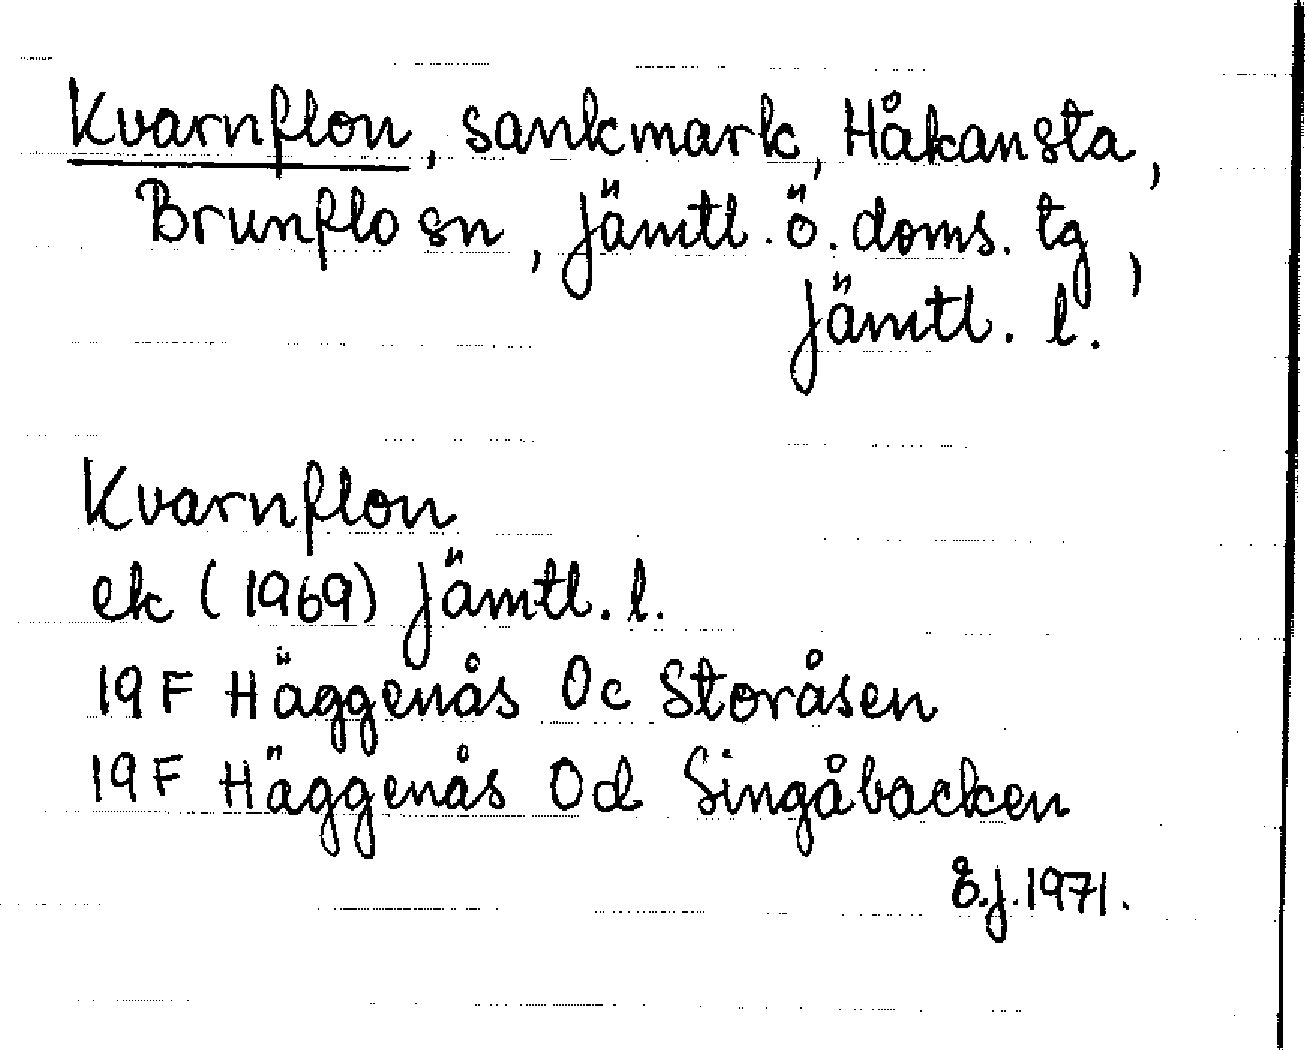 Kvarnflon, sankmark, Håkansta,
Brunflo sn, Jämtl. ö. doms. tg,
Jämtl. l.
Kvarnflon
ek (1969) Jämtl. l.
19 F Häggenås 0c Storåsen
19 F Häggenås 0d Singåbacken
E.J. 1971.